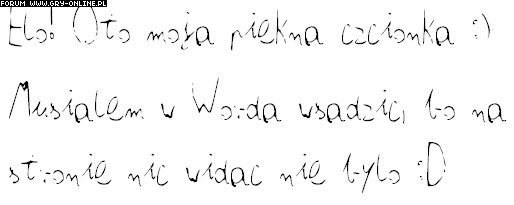 FORUM WWW.GRY-ONLINE.PL
Elo! Oto moja piękna czcionka :)
Musialem w Worda wsadzic, bo na
stronie nic widac nie bylo :D